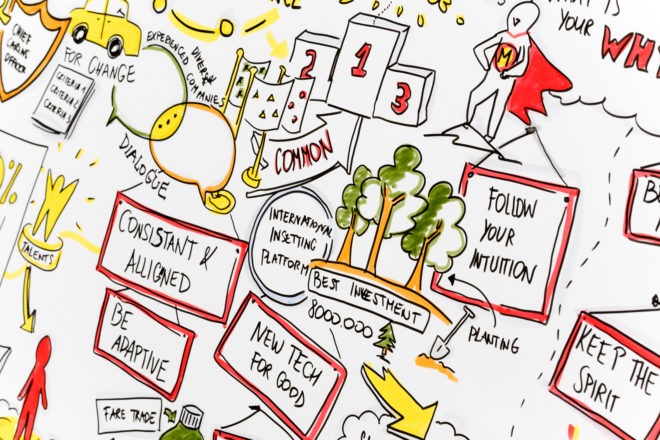 CHIEF
CARING
OFFICER
FOR CHANGE
CRITERIA 1
CRITERIA 2
CRITERIA 3
EXPERIENCED
DIVERSE
COMPANIES
DIALOGUE
2
1
3
COMMON
M
WHAT IS
YOUR WHY
%
TALENTS
CONSISTANT &
ALLIGNED
BE
ADAPTIVE
INTERNATIONAL
INSETTING
PLATFORM
BEST INVESTMENT
8000.000
NEW TECH
FOR GOOD
FOLLOW
YOUR
INTUITION
PLANTING
KEEP THE
SPIRIT
FARE TRADE